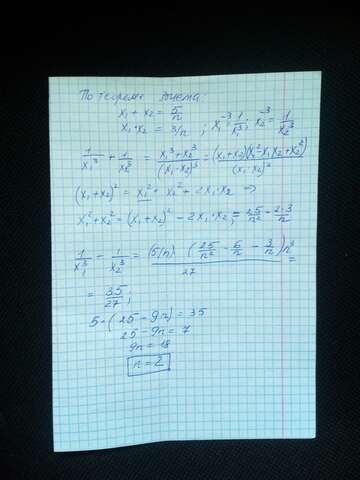 По теореме Виета:
x₁ + x₂ = 5/n
x₁ · x₂ = 3/n ; x₁⁻³ = 1/x₁³ ; x₂⁻³ = 1/x₂³
1/x₁³ + 1/x₂³ = (x₁³ + x₂³)/(x₁ · x₂)³ = (x₁ + x₂)(x₁² - x₁x₂ + x₂²)/(x₁ · x₂)³
(x₁ + x₂)² = x₁² + x₂² + 2x₁ · x₂ ⇒
x₁² + x₂² = (x₁ + x₂)² - 2x₁ · x₂ = 25/n² - 2·3/n
1/x₁³ - 1/x₂³ = (5/n) · (25/n² - 6/n - 3/n)n³/27 =
= 35/27 ;
5 · (25 - 9n) = 35
25 - 9n = 7
9n = 18
n = 2